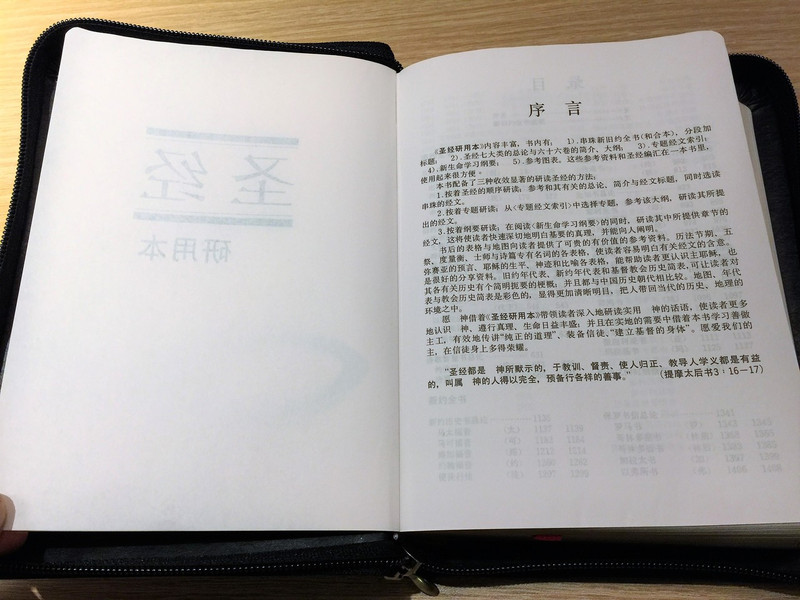 圣经
研用本
序言
《圣经研用本》内容丰富，书内有： 1).串珠新旧约全书(和合本)，分段加
标题； 2).圣经七大类的总论与六十六卷的简介、大纲； 3).专题经文索引；
4).新生命学习纲要； 5).参考图表。这些参考资料和圣经编汇在一本书里，
使用起来很方便。
本书配备了三种收效显著的研读圣经的方法：
1.按着圣经的顺序研读；参考和其有关的总论，简介与经文标题，同时选读
串珠的经文。
2.按着专题研读；从《专题经文索引》中选择专题，参考该大纲，研读其所提
出的经文。
3.按着纲要研读；在阅读《新生命学习纲要》的同时，研读其中所提供章节的
经文，这将使读者快速深切地明白基要的真理，并能向人阐明。
书后的表格与地图向读者提供了可贵的有价值的参考资料。历法节期、五
祭，度量衡、士师与诗篇专有名词的各表格，使读者容易明白有关经文的含意。
弥赛亚的预言、耶稣的生平、神迹和比喻各表格，能帮助读者更认识主耶稣，也
是很好的分享资料。旧约年代表、新约年代表和基督教会历史简表，可让读者对
其各有关历史有个简明扼要的梗概；并且都与中国历史朝代相比较。地图、年代
表与教会历史简表是彩色的，显得更加清晰明目，把人带回当代的历史、地理的
环境之中。
愿 神借着《圣经研用本》带领读者深入地研读实用 神的话语，使读者更多
地认识 神、遵行真理、生命日益丰盛；并且在实地的需要中借着本书学习善做
主工，有效地传讲“纯正的道理”、装备信徒、“建立基督的身体”。愿爱我们的
主，在信徒身上多得荣耀。
“圣经都是 神所默示的，于教训、督责、使人归正、教导人学义都是有益
的，叫属 神的人得以完全，预备行各样的善事。” (提摩太后书3：16—17)